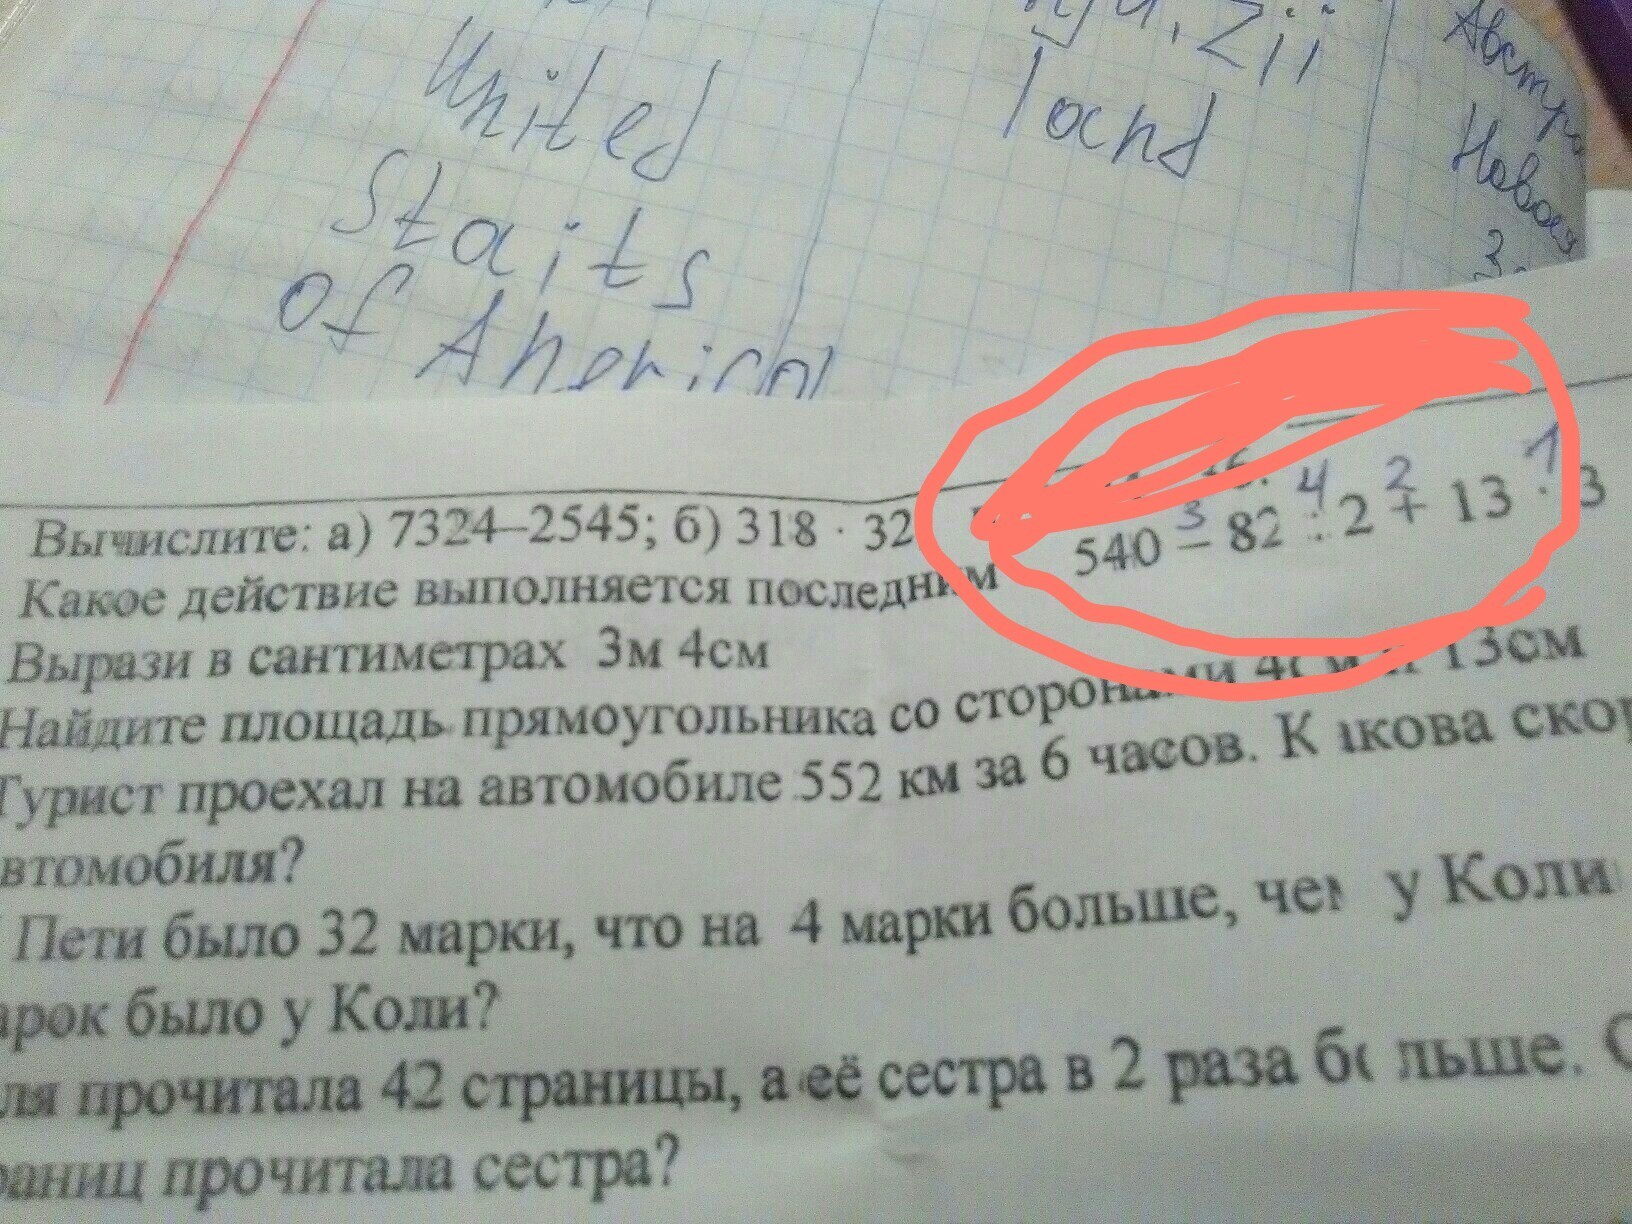 United
Staits
of America
land
Австр
Новая
Вычислите: а) 7324–2545; б) 318 · 32
Какое действие выполняется последним 540 – 82 : 2 + 13 · 3
3 4 2 1
Вырази в сантиметрах 3м 4см
Найдите площадь прямоугольника со сторонами 4см и 13см
Турист проехал на автомобиле 552 км за 6 часов. Какова скор
втомобиля?
Пети было 32 марки, что на 4 марки больше, чем у Коли
арок было у Коли?
ля прочитала 42 страницы, а её сестра в 2 раза больше. С
раниц прочитала сестра?